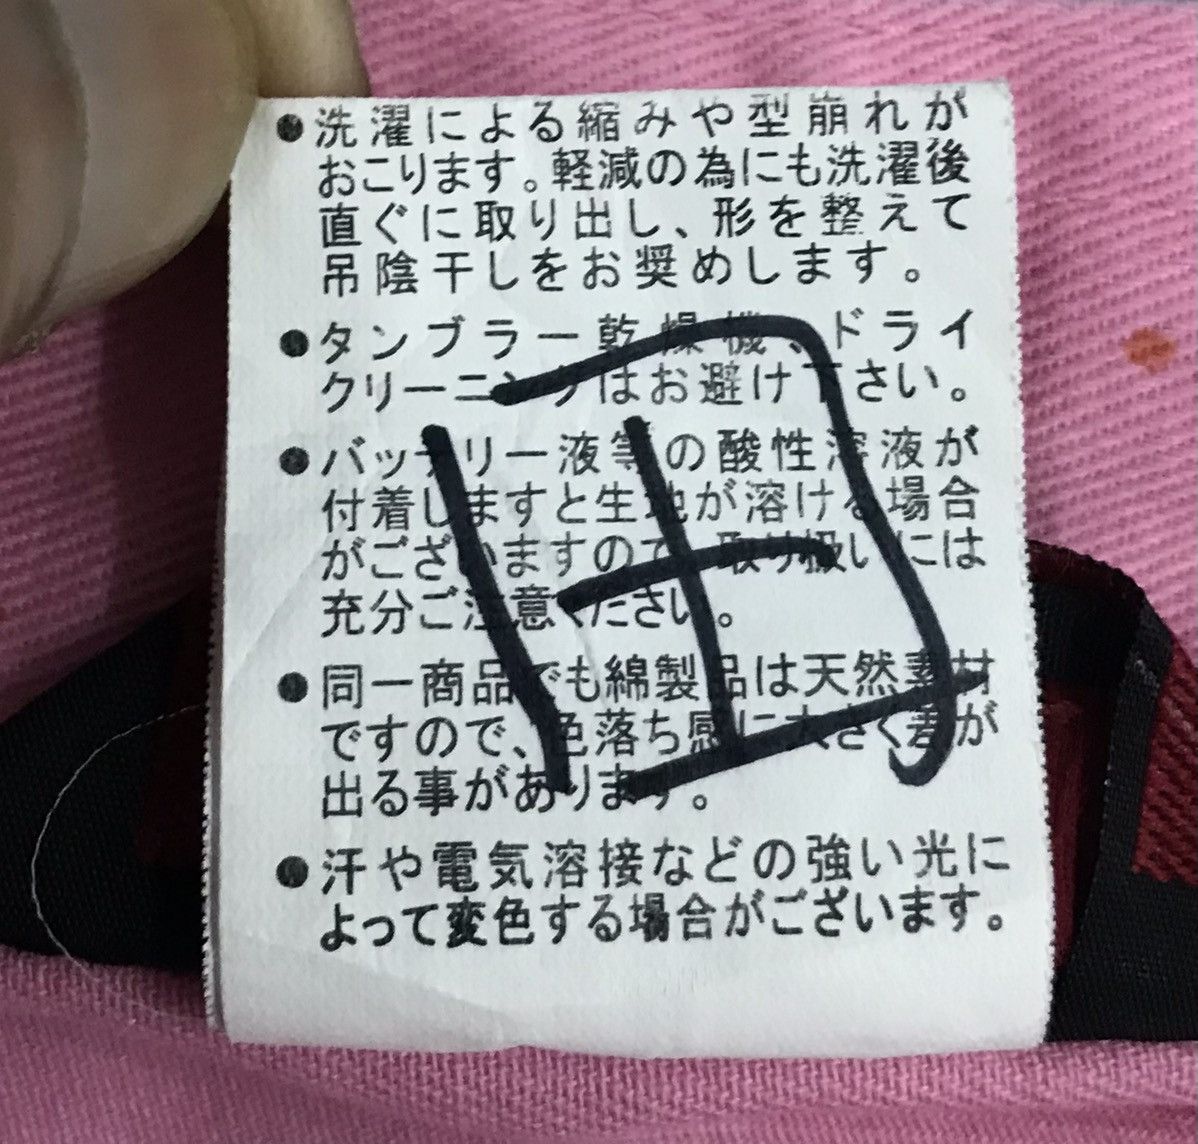 ●洗濯による縮みや型崩れが
おこります。軽減の為にも洗濯後
直ぐに取り出し、形を整えて
吊陰干しをお奨めします。
●タンブラー乾燥機、ドライ
クリーニングはお避け下さい。
●バッテリー液等の酸性溶液が
付着しますと生地が溶ける場合
がございますので、取り扱いには
充分ご注意ください。
●同一商品でも綿製品は天然素材
ですので、色落ち感に大きく差が
出る事があります。
●汗や電気溶接などの強い光に
よって変色する場合がございます。
田